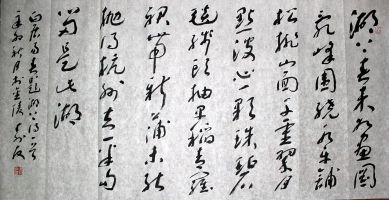 湖上春来似画图
乱峰围绕水平铺
松排山面千重翠月
点波心一颗珠碧
毯线头抽早稻青罗
裙带新蒲未能
抛得杭州去一半勾
留是此湖
白居易春题湖上诗一首